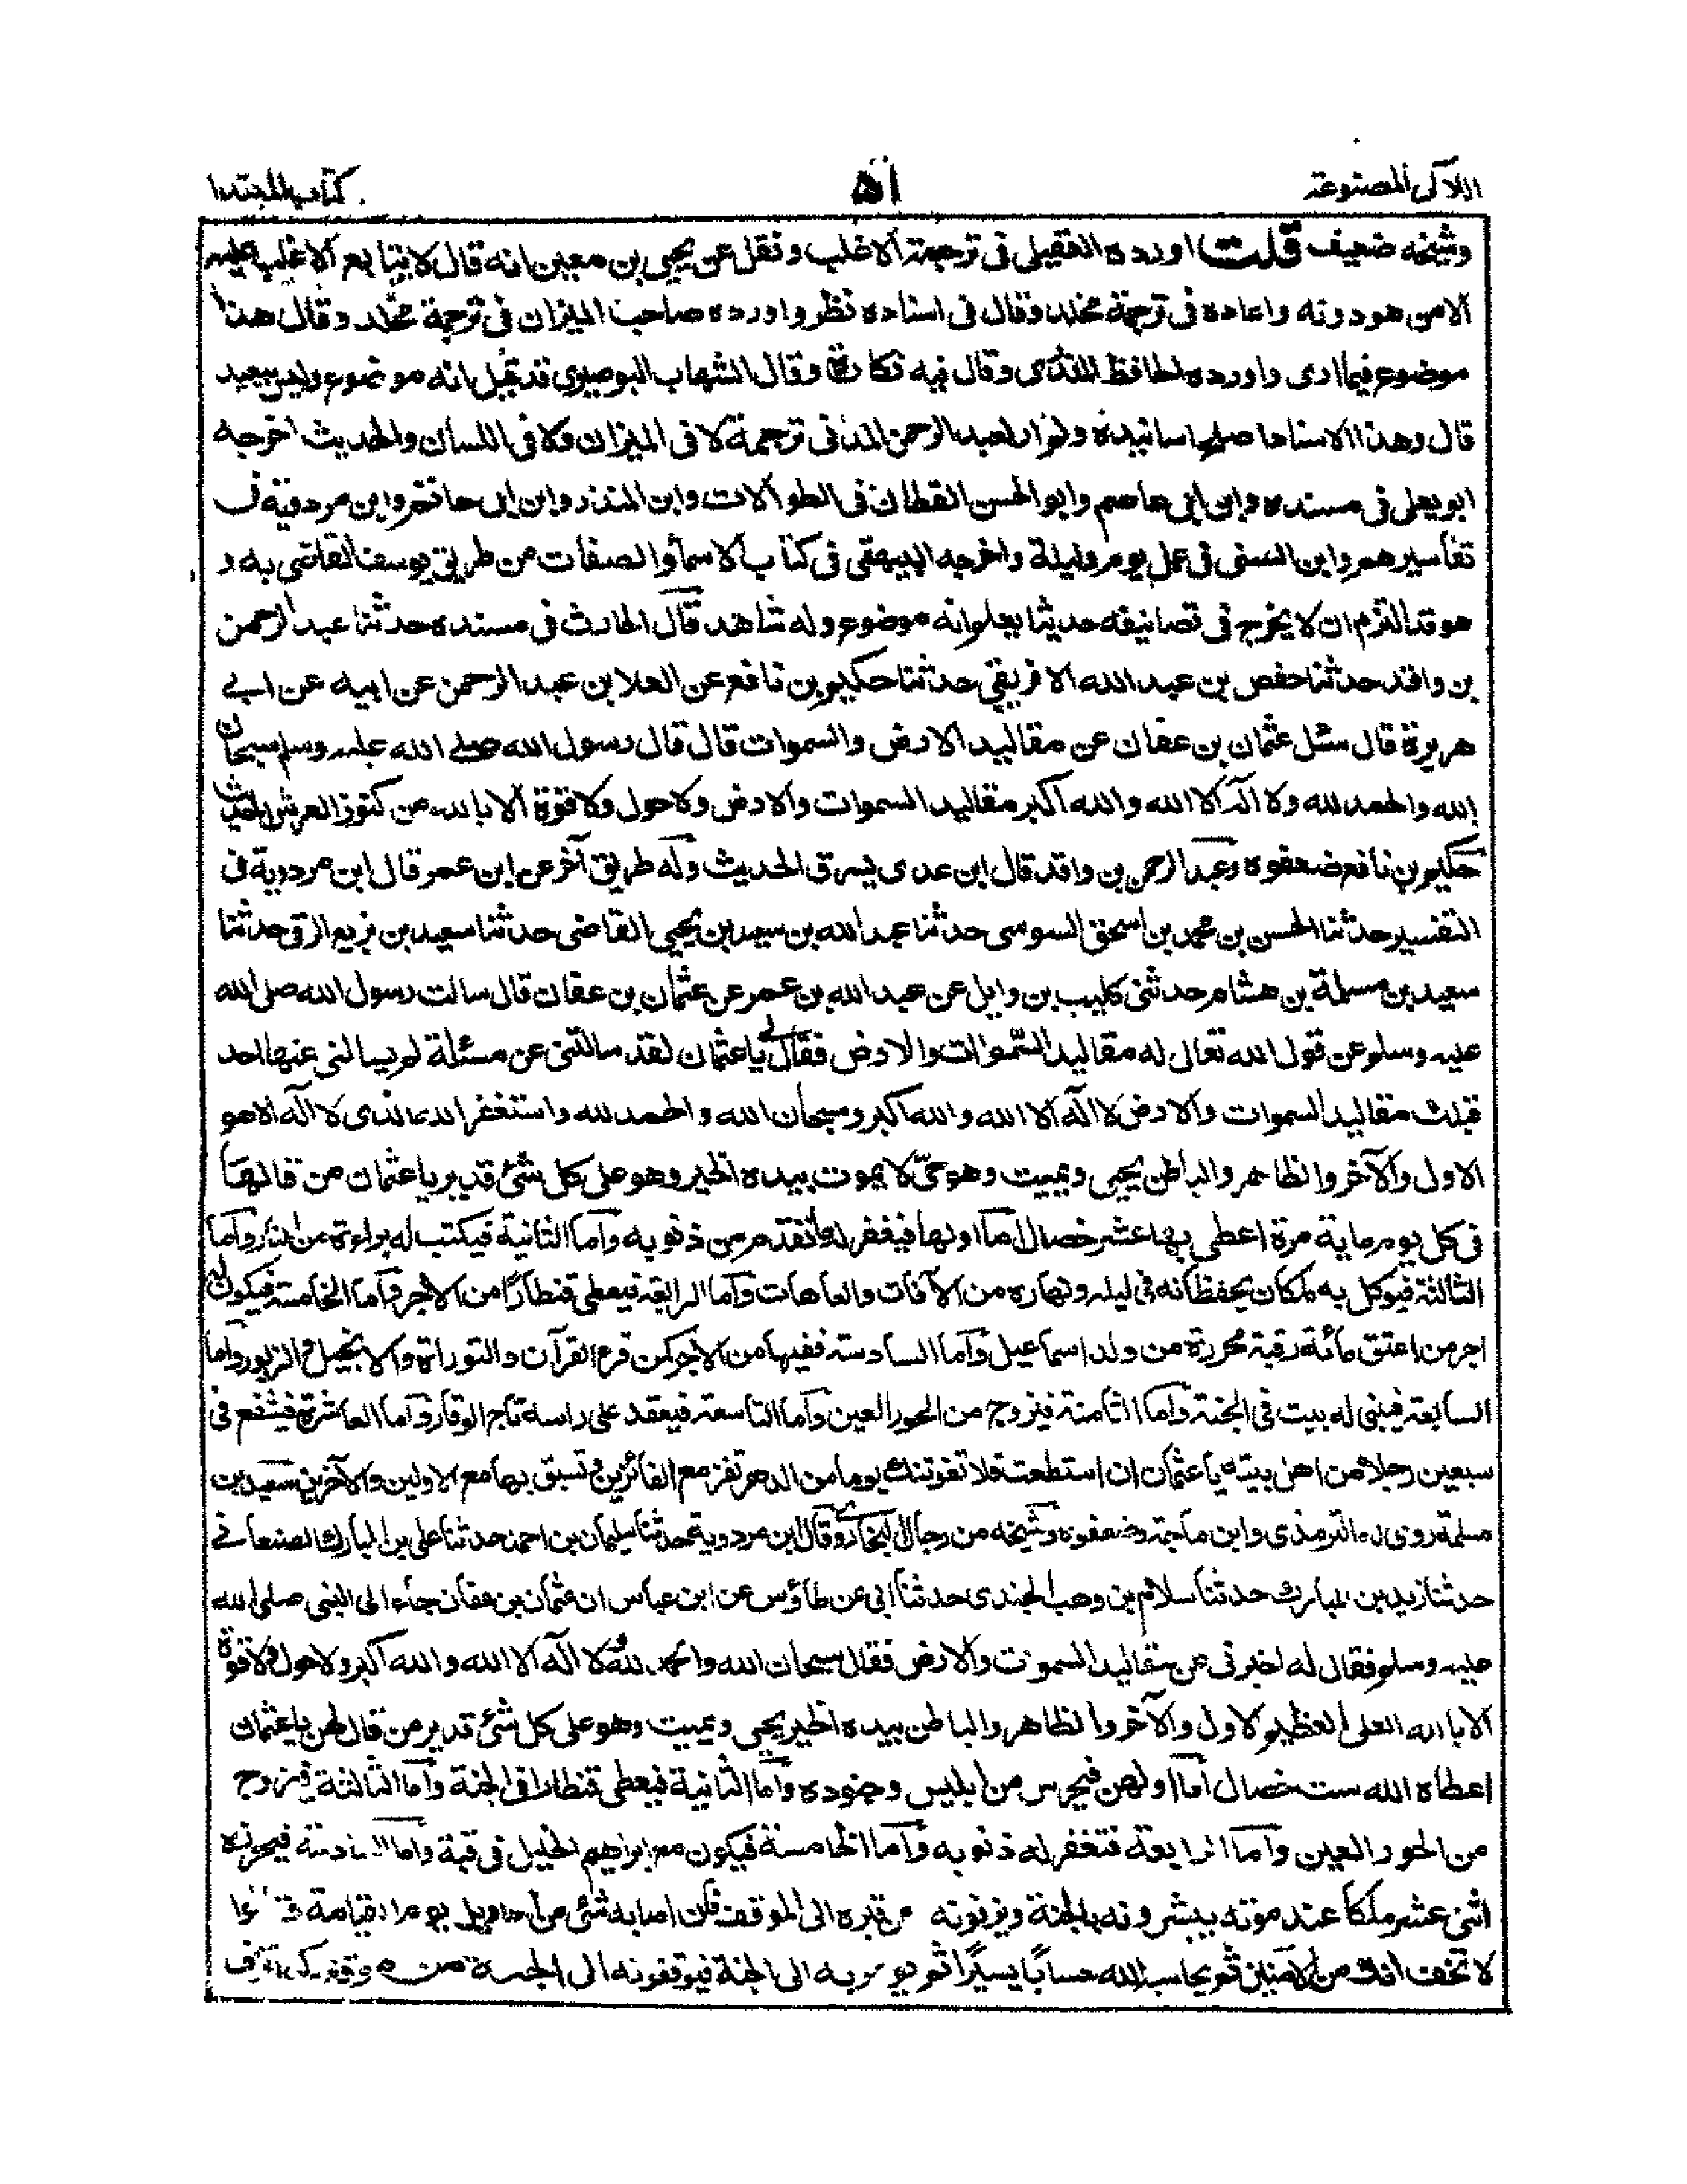 اللآلى المصنوعة
٥١
كتاب المبتدا
وشيخه ضعيف قلت اورده العقيلى فى ترجمة الاغلب ونقل عن يحيى بن معين انه قال لا يتابع الاغلب عليه
الا من هو دونه واعاده فى ترجمة مخلد وقال فى اسناده نظر واورده صاحب الميزان فى ترجمة مخلد وقال هذا
موضوع فيما ارى واورده الحافظ المنذرى وقال فيه نكارة وقال الشهاب البوصيرى قد قيل انه موضوع وليس ببعيد
قال وهذا الاسناد اصلح اسانيده ولم ار لعبد الرحمن المدنى ترجمة لا فى الميزان ولا فى اللسان والحديث اخرجه
ابو يعلى فى مسنده وابن ابى عاصم وابو الحسن القطان فى الطوالات وابن المنذر وابن ابى حاتم وابن مردويه فى
تفاسيرهم وابن السنى فى عمل يوم وليلة واخرجه البيهقى فى كتاب الاسمأ والصفات من طريق يوسف القاضى به و
هو قد التزم ان لا يخرج فى تصانيفه حديثا يعلم انه موضوع وله شاهد قال الحارث فى مسنده حدثنا عبد الرحمن
بن واقد حدثنا حفص بن عبد الله الافريقى حدثنا حكيم بن نافع عن العلا بن عبد الرحمن عن ابيه عن ابى
هريرة قال سئل عثمان بن عفان عن مقاليد الارض والسموات قال قال رسول الله صلے الله عليه وسلم سبحان
الله والحمد لله ولا اله الا الله والله اكبر مقاليد السموات والارض ولا حول ولا قوة الا بالله من كنوز العرش الحديث
حكيم بن نافع ضعفوه وعبد الرحمن بن واقد قال ابن عدى يسرق الحديث وله طريق آخر عن ابن عمر قال ابن مردوية فى
التفسير حدثنا الحسن بن محمد بن اسحق السوسى حدثنا عبد الله بن سعيد بن يحيى القاضى حدثنا سعيد بن بزيع الرقى حدثنا
سعيد بن مسلمة بن هشام حدثنى كليب بن وايل عن عبد الله بن عمر عن عثمان بن عفان قال سالت رسول الله صلى الله
عليه وسلم عن قول الله تعالى له مقاليد السموات والارض فقال لى يا عثمان لقد سالتنى عن مسئلة لم يسالنى عنها احد
قبلك مقاليد السموات والارض لا اله الا الله والله اكبر وسبحان الله والحمد لله واستغفر الله الذى لا اله الا هو
الاول والآخر والظاهر والباطن يحيى ويميت وهو حىّ لا يموت بيده الخير وهو على كل شئ قدير يا عثمان من قالها
فى كل يوم ماية مرة اعطى بها عشر خصال اما اولها فيغفر له ما تقدم من ذنوبه واما الثانية فيكتب له براءة من النار واما
الثالثة فيوكل به ملكان يحفظانه فى ليله ونهاره من الآفات والعاهات واما الرابعة فيعطى قنطارًا من الاجر واما الخامسة فيكون له
اجر من اعتق مائة رقبة محررة من ولد اسماعيل واما السادسة ففيها من الاجر كمن قرء القرآن والتوراة والانجيل والزبور واما
السابعة فيبنى له بيت فى الجنة واما الثامنة فيزوج من الحور العين واما التاسعة فيعقد على راسه تاج الوقار واما العاشرة فيشفع فى
سبعين رجلا من اهل بيته يا عثمان ان استطعت فلا تفوتنك يوما من الدهر تفز مع الفائزين وتسبق بها مع الاولين والآخرين سعيد بن
مسلمة روى له الترمذى وابن ماجة وضعفوه وشيخه من رجال البخارى وقال ابن مردوية حدثنا سليمان بن احمد حدثنا على بن المبارك الصنعانى
حدثنا زيد بن المبارك حدثنا سلام بن وهب الجندى حدثنا ابى عن طاؤس عن ابن عباس ان عثمان بن عفان جاء الى النبى صلى الله
عليه وسلم فقال له اخبرنى عن مقاليد السموت والارض فقال سبحان الله والحمد لله ولا اله الا الله والله اكبر ولا حول ولا قوة
الا بالله العلى العظيم الاول والآخر والظاهر والباطن بيده الخير يحيى ويميت وهو على كل شئ قدير من قالهن يا عثمان
اعطاه الله ست خصال اما اولهن فيحرس من ابليس وجنوده واما الثانية فيعطى قنطارا فى الجنة واما الثالثة فيزوج
من الحور العين واما الرابعة فتغفر له ذنوبه واما الخامسة فيكون مع ابراهيم الخليل فى قبة واما السادسة فيحرزه
اثنى عشر ملكا عند موته يبشرونه بالجنة ويزفونه من قبره الى الموقف فان اصابه شئ من اهاويل يوم القيامة قالوا
لا تخف انك من الآمنين ثم يحاسبه الله حسابًا يسيرًا ثم يومر به الى الجنة فيوقفونه الى الجنة من موقفه كما تزف